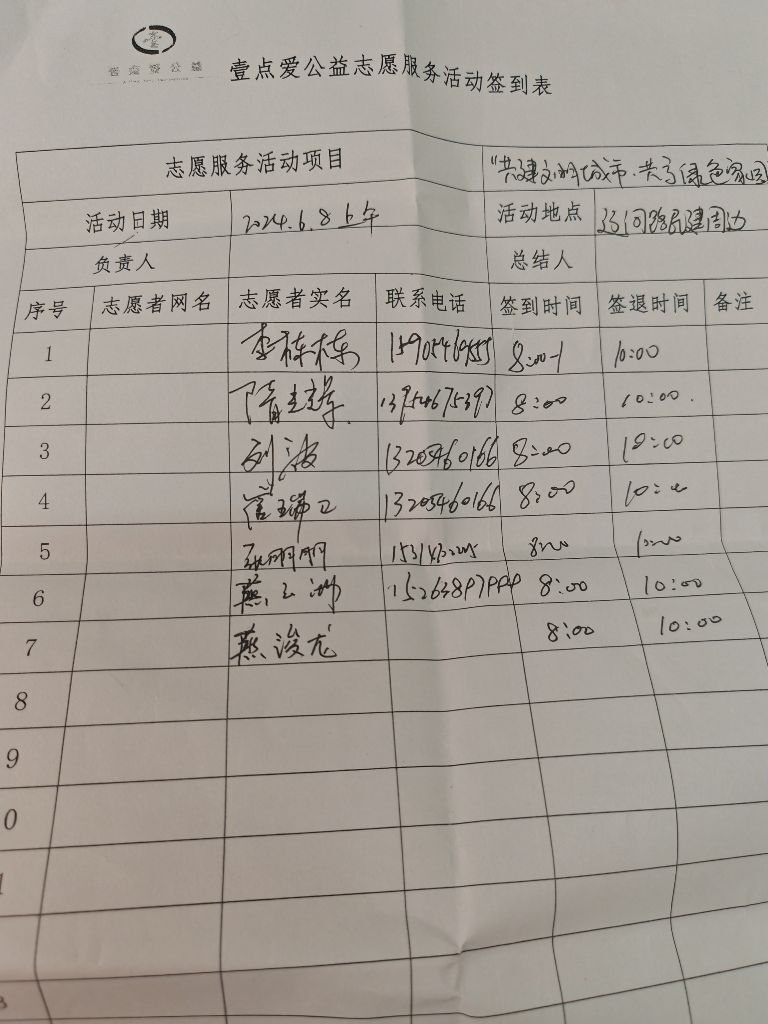 壹点爱公益
壹点爱公益志愿服务活动签到表
志愿服务活动项目 "共建文明城市、共享绿色家园
活动日期 2024.6.8 上午 活动地点 运河路民建周边
负责人 总结人
序号 志愿者网名 志愿者实名 联系电话 签到时间 签退时间 备注
1 李栋栋 8:00 10:00
2 隋 13954675397 8:00 10:00.
3 刘波 13205460166 8:00 10:00
4 信瑞卫 13205460166 8:00 10:00
5 张明明 8:00 10:00
6 燕 8:00 10:00
7 燕浚尤 8:00 10:00
8
9
0
1
3